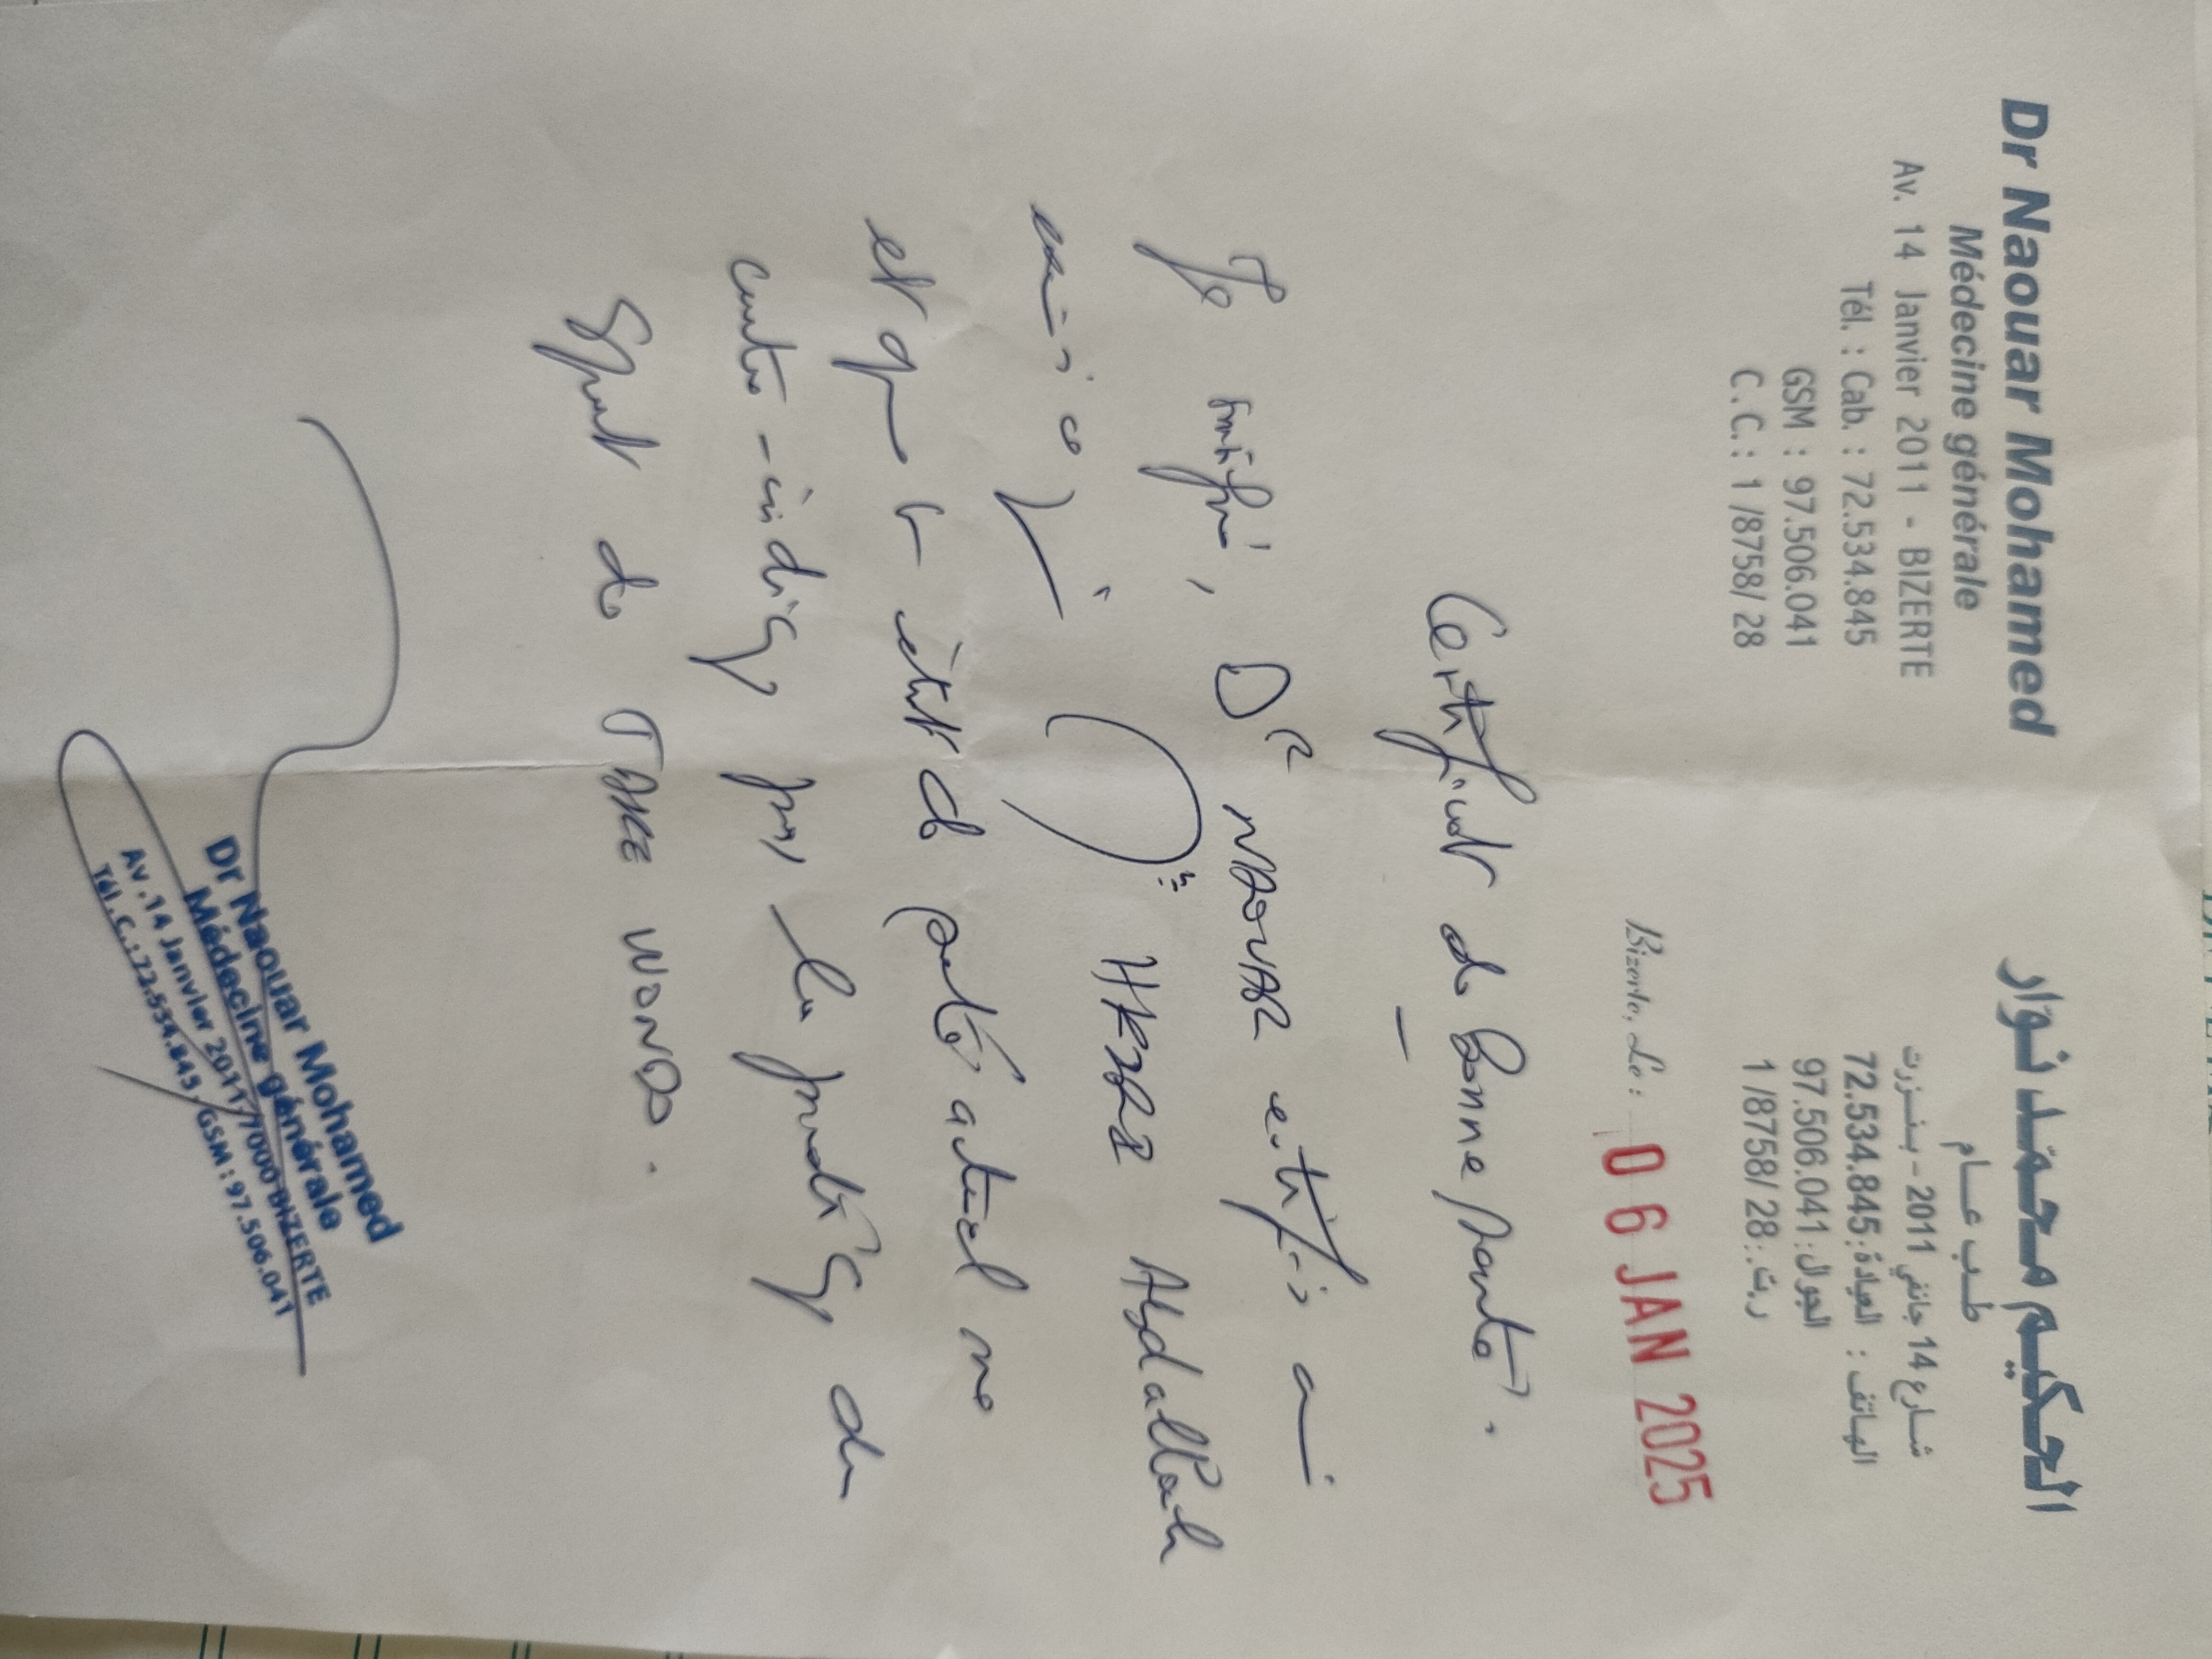 Dr Naouar Mohamed
Médecine générale
Av. 14 Janvier 2011 - BIZERTE
Tél. : Cab. : 72.534.845
GSM : 97.506.041
C.C. : 1 /8758/ 28
الحكيم محمد نوار
طب عام
شارع 14 جانفي 2011 - بنزرت
الهاتف : العيادة : 72.534.845
الجوال : 97.506.041
ر.ت. : 1/8758/ 28
Bizerte, Le : 06 JAN 2025
Certificat de bonne santé.
Je soussigné, Dr NAOUAR certifie a
Abdallah
et que son état de santé actuel ne
contre-indique pas la pratique du
Sport de TAKE WONDO.
Dr Naouar Mohamed
Médecine générale
Av .14 Janvier 2011 7000 BIZERTE
Tél. C.: 72.534.845, GSM : 97.506.041